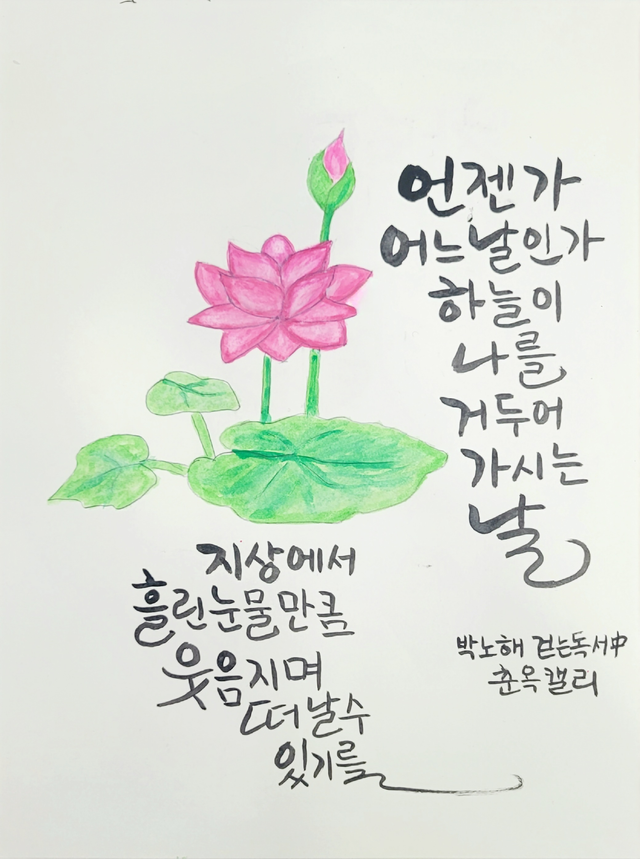 언젠가
어느날인가
하늘이
나를
거두어
가시는
날
지상에서
흘린눈물만큼
웃음지며
떠날수
있기를
박노해 걷는독서中
춘옥캘리